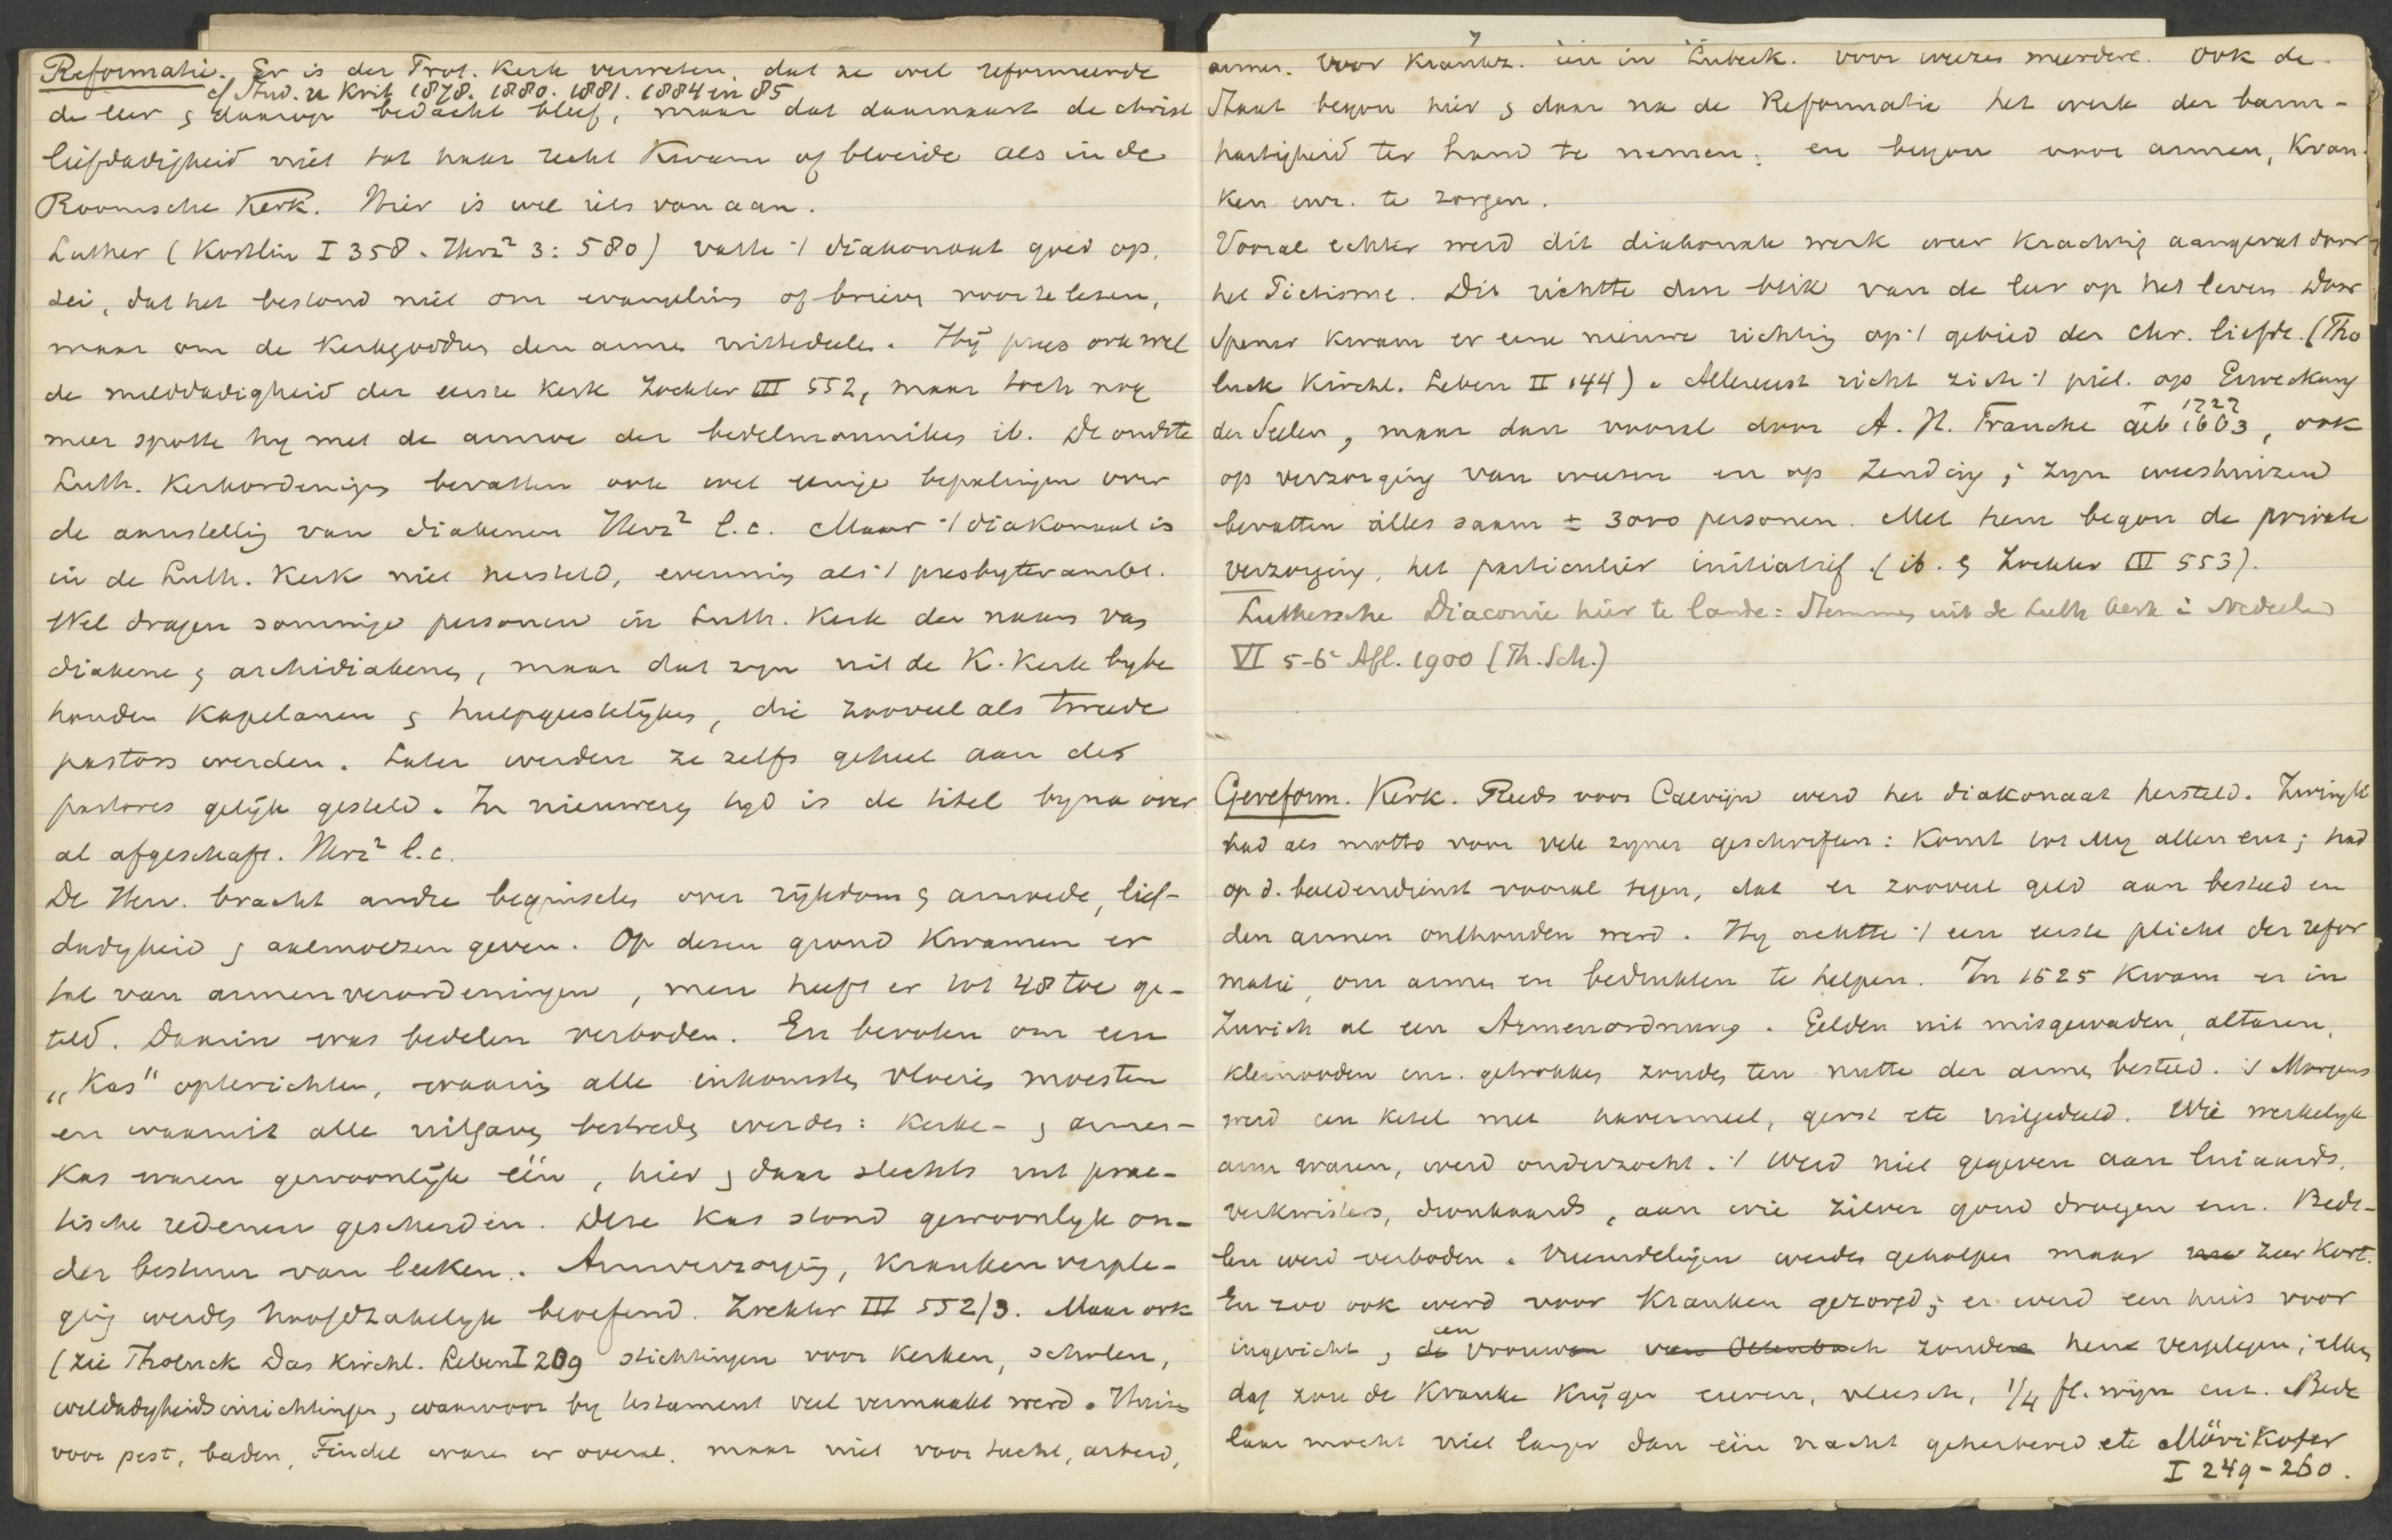 Reformatie. Er is der Prot. Kerk verweten, dat ze wel reformeerde
cf Stud. u Krit 1878. 1880. 1881. 1884 en 85
de leer & daarop bedacht bleef, maar dat daarnaast de christ
liefdadigheid niet tot haar recht kwam of bloeide als in de
Roomsche Kerk. Hier is wel iets van aan.
Luther (Kostlin I 358. Herz² 3: 580) vatte 't diakonaat goed op,
zei, dat het bestond niet om evangeliën of brieven voor te lezen,
maar om de Kerkgoederen den armen uittedeelen. Hij prees ook wel
de milddadigheid der eerste Kerk Zockler III 552, maar toch nog
meer spotte hy met de armoe der bedelmonniken ib. De oudste
Luth. Kerkordeningen bevatten ook wel eenige bepalingen over
de aanstelling van diakenen Herz² l.c. Maar 't diakonaat is
in de Luth. Kerk niet hersteld, evenmin als 't presbyterambt.
Wel dragen sommige personen in Luth. Kerk den naam van
diakenen & archidiakenen, maar dat zyn uit de K. Kerk bybe
houden Kapelanen & hulpgeestelijken, die zooveel als tweede
pastors werden. Later werden ze zelfs geheel aan de
pastores gelijk gesteld. In nieuweren tyd is de titel byna over
al afgeschaft. Herz² l.c.
De Herv. bracht andre beginselen over rijkdom & armoede, lief-
dadigheid & aalmoezen geven. Op dezen grond kwamen er
tal van armenverordeningen, men heeft er tot 48 toe ge-
teld. Daarin was bedelen verboden. En bevolen om een
„Kas" opterichten, waarin alle inkomsten vloeien moesten
en waaruit alle uitgaven bestreden werden: Kerke- & armen-
Kas waren gewoonlijk één, hier & daar slechts uit prac-
tische redenen gescheiden. Deze Kas stond gewoonlyk on-
der bestuur van leeken. Armverzorging, Krankenverple-
ging werden hoofdzakelyk beoefend. Zockler III 552/3. Maar ook
(zie Tholuck Das Kirchl. Leben I 209 stichtingen voor Kerken, scholen,
weldadigheidsinrichtingen, waarvoor by testament veel vermaakt werd. Huizen
voor pest, baden, Findel waren er overal. maar niet voor tucht, arbeid,
armen. Voor Krankz. één in Lubeck. voor weezen meerdere. Ook de
Staat begon hier & daar na de Reformatie het werk der barm-
hartigheid ter hand te nemen; en begon voor armen, Kran-
ken enz. te zorgen.
Vooral echter werd dit diakonale werk weer krachtig aangevat door
het Pietisme. Dit richtte den blik van de leer op het leven. Door
Spener kwam er eene nieuwe richting op 't gebied der Chr. liefde. (Tho
luck Kirchl. Leben II 144). Allereerst richt zich 't piet. op Erweckung
der Seelen, maar dan vooral door A. H. Francke geb 1663, ook
† 1727
op verzorging van weezen en op Zending; zyn weeshuizen
bevatten alles saam ± 3000 personen. Met hem begon de private
verzorging, het particulier initiatief. (ib. & Zockler III 553).
Luthersche Diaconie hier te lande: Stemmen uit de Luth kerk in Nederland
VI 5-6e Afl. 1900 (Th. Sch.)
Gereform. Kerk. Reeds voor Calvijn werd het diakonaat hersteld. Zwingli
had als motto voor vele zyner geschriften: Komt tot My allen enz; had
op d. beeldendienst vooral tegen, dat er zooveel geld aan besteed en
den armen onthouden werd. Hy achtte 't een eerste plicht der refor
matie, om armen en bedrukten te helpen. In 1525 kwam er in
Zurich al een Armenordnung. Gelden uit misgewaden, altaren,
kleinooden enz. getrokken zouden ten nutte der armen besteed. 's Morgens
werd een ketel met havermeel, gerst etc uitgedeeld. Wie werkelyk
arm waren, werd onderzocht. 't Werd niet gegeven aan luiaards,
verkwisters, dronkaards, aan wie zilver goud dragen enz. Bede-
len werd verboden. Vreemdelingen werden geholpen maar zeer kort.
En zoo ook werd voor Kranken gezorgd; er werd een huis voor
ingericht, de vrouwen van Oetenbach zouden hen verplegen; elken
een
dag zou de Kranke krijgen eieren, vleesch, 1/4 fl. wijn enz. Bede
laar mocht niet langer dan één nacht geherbergd etc Mörikofer
I 249-260.